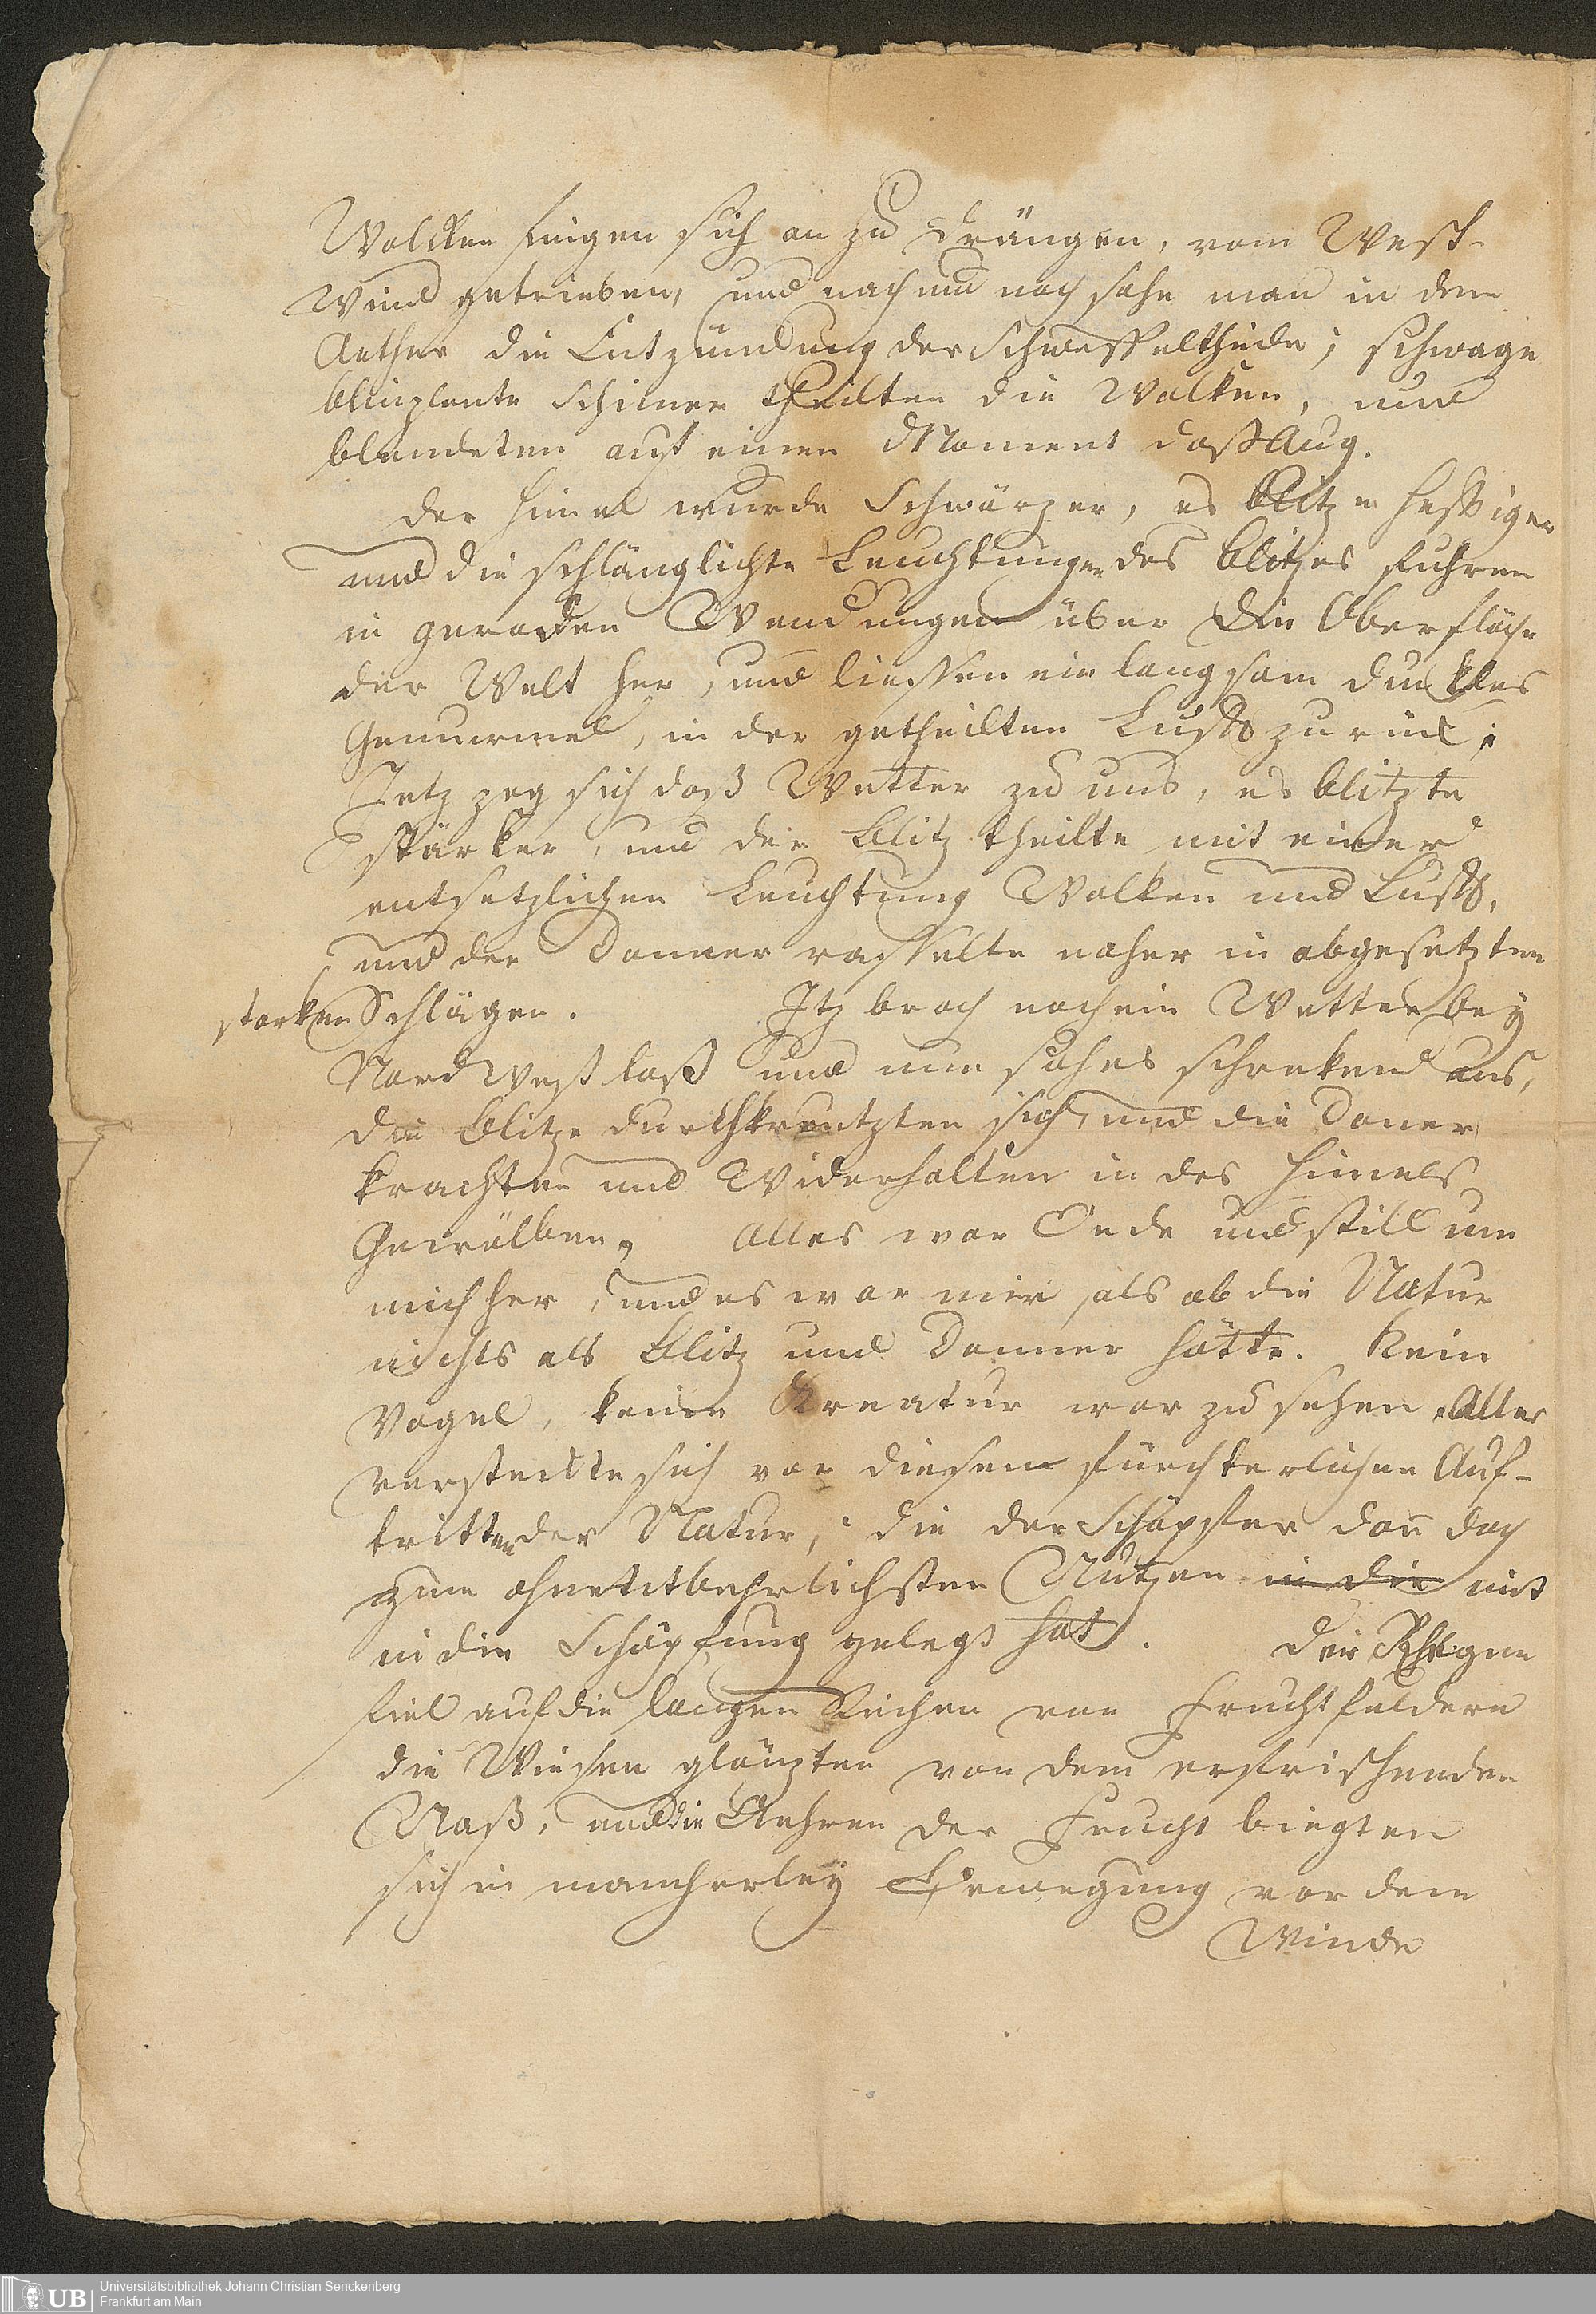 Wolcken fingen sich an zu drängen, vom West-
wind getrieben, und nach und nach sahe man in dem
Aether die Entzündung der Schweffeltheile; schwage
blinzlente Schimer theilten die Wolken, und
blendeten auf einen Moment daß Aug.
Der Himel wurde Schwärzer, es blitze hefftiger
und die schlänglichte Leuchtungen des Blitzes fuhren
in geraden Wendungen über die Oberfläche
der Welt her, und liessen ein langsam dunkles
Gemurmel, in der getheilten Lufft zurück;
Jetz zog sich daß Wetter zu uns, es blitzte
stärker, und der Blitz theilte mit einer
entsetzlichen Leuchtung Wolken und Lufft,
und der Donner rasselte naher in abgesetzten
starken Schlägen. Itz brach noch ein Wetter bey
Nord West loß und nun sah es schrekend aus,
die Blitze durchkreutzten sich, und die Doner
krachten und Widerhalten in des Himels
Gewölben, Alles war Oede und still um
mich her, und es war mir, als ob die Natur
nichts als Blitz und Donner hätte. Kein
Vogel, keine Kreatur war zu sehen, Alles
versteckte sich vor diesem fürchterlichen Auf-
tritten der Natur, die der Schöpffer dann doch
zum ohnentbehrlichsten Nutzen in die mit
in die Schöpfung gelegt hat. Der Rhegen
fiel auf die langen Reihen von Fruchtfeldern
die Wiesen glänzten von dem erfrischenden
Naß, und die Aehren der Frucht biegten
sich in mancherley Bewegung vor dem
Winde
Universitätsbibliothek Johann Christian Senckenberg
Frankfurt am Main
UB